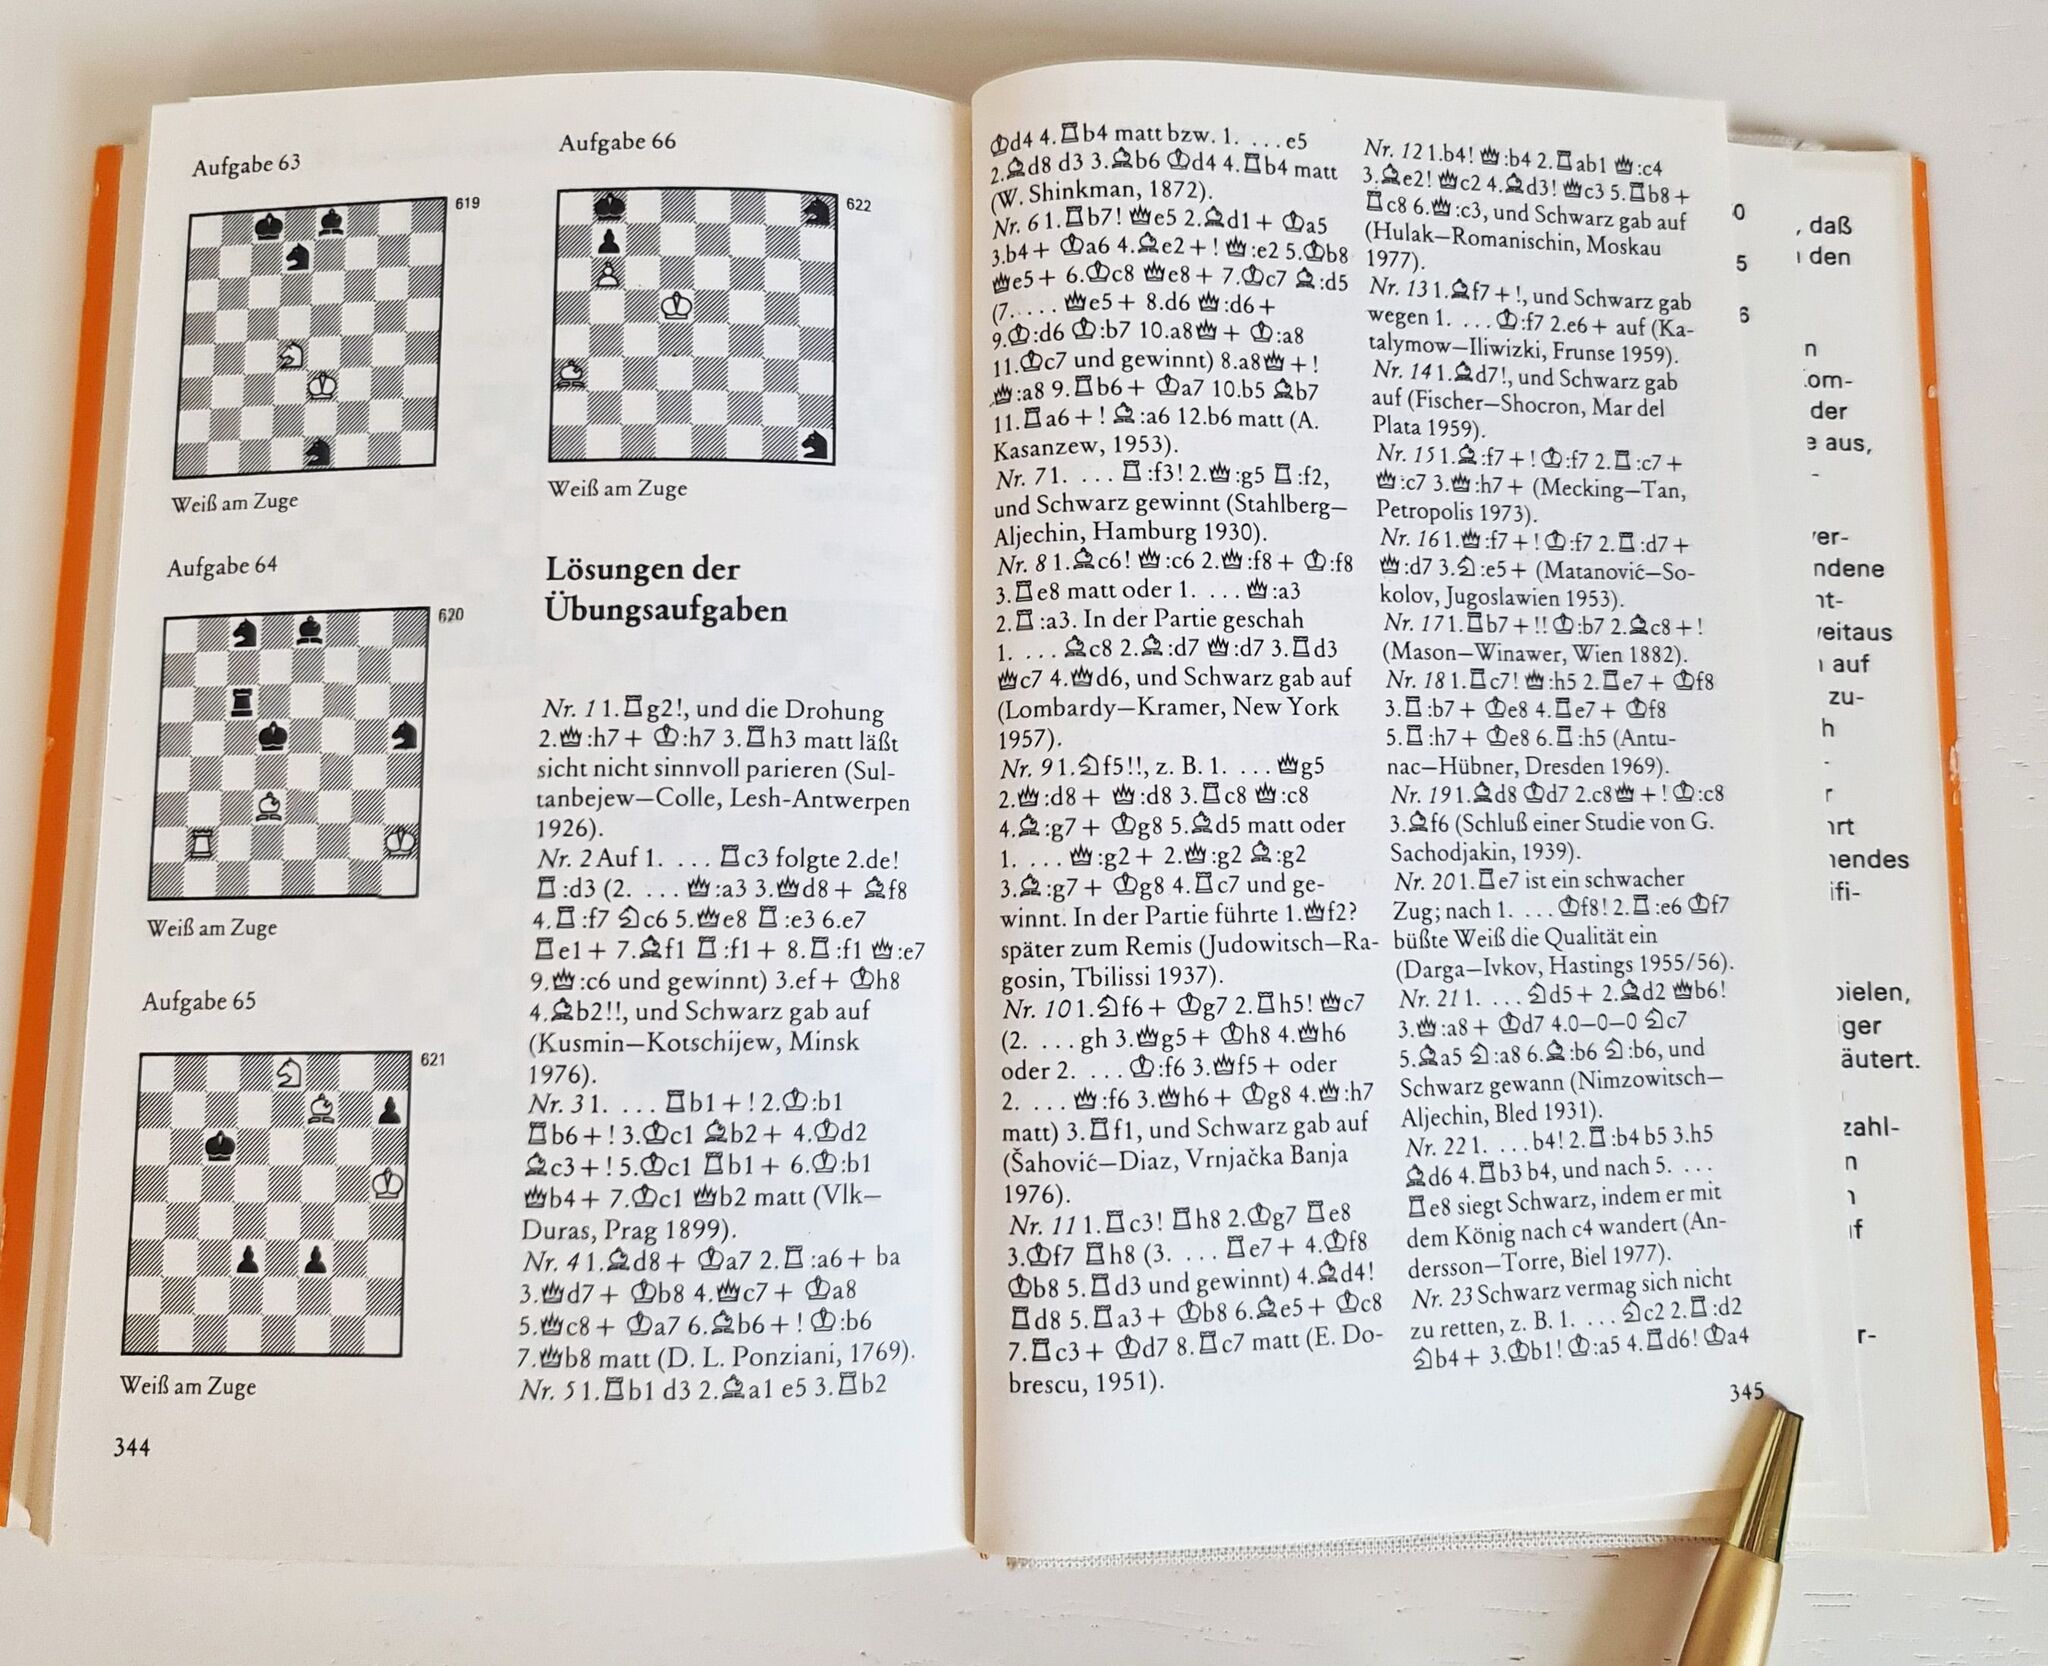 Aufgabe 63
619
Weiß am Zuge
Aufgabe 64
620
Weiß am Zuge
Aufgabe 65
621
Weiß am Zuge
344
Aufgabe 66
622
Weiß am Zuge
Lösungen der
Übungsaufgaben
Nr. 1 1.♖g2!, und die Drohung
2.♕:h7+ ♔:h7 3.♖h3 matt läßt
sicht nicht sinnvoll parieren (Sul-
tanbejew–Colle, Lesh-Antwerpen
1926).
Nr. 2 Auf 1. ... ♖c3 folgte 2.de!
♖:d3 (2. ... ♕:a3 3.♕d8+ ♗f8
4.♖:f7 ♘c6 5.♕e8 ♖:e3 6.e7
♖e1+ 7.♗f1 ♖:f1+ 8.♖:f1 ♕:e7
9.♕:c6 und gewinnt) 3.ef+ ♔h8
4.♗b2!!, und Schwarz gab auf
(Kusmin–Kotschijew, Minsk
1976).
Nr. 3 1. ... ♖b1+! 2.♔:b1
♖b6+! 3.♔c1 ♗b2+ 4.♔d2
♗c3+! 5.♔c1 ♖b1+ 6.♔:b1
♕b4+ 7.♔c1 ♕b2 matt (Vlk–
Duras, Prag 1899).
Nr. 4 1.♗d8+ ♔a7 2.♖:a6+ ba
3.♕d7+ ♔b8 4.♕c7+ ♔a8
5.♕c8+ ♔a7 6.♗b6+! ♔:b6
7.♕b8 matt (D. L. Ponziani, 1769).
Nr. 5 1.♖b1 d3 2.♗a1 e5 3.♖b2
♔d4 4.♖b4 matt bzw. 1. ... e5
2.♗d8 d3 3.♗b6 ♔d4 4.♖b4 matt
(W. Shinkman, 1872).
Nr. 6 1.♖b7! ♕e5 2.♗d1+ ♔a5
3.b4+ ♔a6 4.♗e2+! ♕:e2 5.♔b8
♕e5+ 6.♔c8 ♕e8+ 7.♔c7 ♗:d5
(7. ... ♕e5+ 8.d6 ♕:d6+
9.♔:d6 ♔:b7 10.a8♕+ ♔:a8
11.♔c7 und gewinnt) 8.a8♕+!
♕:a8 9.♖b6+ ♔a7 10.b5 ♗b7
11.♖a6+! ♗:a6 12.b6 matt (A.
Kasanzew, 1953).
Nr. 7 1. ... ♖:f3! 2.♕:g5 ♖:f2,
und Schwarz gewinnt (Stahlberg–
Aljechin, Hamburg 1930).
Nr. 8 1.♗c6! ♕:c6 2.♕:f8+ ♔:f8
3.♖e8 matt oder 1. ... ♕:a3
2.♖:a3. In der Partie geschah
1. ... ♗c8 2.♗:d7 ♕:d7 3.♖d3
♕c7 4.♕d6, und Schwarz gab auf
(Lombardy–Kramer, New York
1957).
Nr. 9 1.♘f5!!, z. B. 1. ... ♕g5
2.♕:d8+ ♕:d8 3.♖c8 ♕:c8
4.♗:g7+ ♔g8 5.♗d5 matt oder
1. ... ♕:g2+ 2.♕:g2 ♗:g2
3.♗:g7+ ♔g8 4.♖c7 und ge-
winnt. In der Partie führte 1.♕f2?
später zum Remis (Judowitsch–Ra-
gosin, Tbilissi 1937).
Nr. 10 1.♘f6+ ♔g7 2.♖h5! ♕c7
(2. ... gh 3.♕g5+ ♔h8 4.♕h6
oder 2. ... ♔:f6 3.♕f5+ oder
2. ... ♕:f6 3.♕h6+ ♔g8 4.♕:h7
matt) 3.♖f1, und Schwarz gab auf
(Šahović–Diaz, Vrnjačka Banja
1976).
Nr. 11 1.♖c3! ♖h8 2.♔g7 ♖e8
3.♔f7 ♖h8 (3. ... ♖e7+ 4.♔f8
♔b8 5.♖d3 und gewinnt) 4.♗d4!
♖d8 5.♖a3+ ♔b8 6.♗e5+ ♔c8
7.♖c3+ ♔d7 8.♖c7 matt (E. Do-
brescu, 1951).
Nr. 12 1.b4! ♕:b4 2.♖ab1 ♕:c4
3.♗e2! ♕c2 4.♗d3! ♕c3 5.♖b8+
♖c8 6.♕:c3, und Schwarz gab auf
(Hulak–Romanischin, Moskau
1977).
Nr. 13 1.♗f7+!, und Schwarz gab
wegen 1. ... ♔:f7 2.e6+ auf (Ka-
talymow–Iliwizki, Frunse 1959).
Nr. 14 1.♗d7!, und Schwarz gab
auf (Fischer–Shocron, Mar del
Plata 1959).
Nr. 15 1.♗:f7+! ♔:f7 2.♖:c7+
♕:c7 3.♕:h7+ (Mecking–Tan,
Petropolis 1973).
Nr. 16 1.♕:f7+! ♔:f7 2.♖:d7+
♕:d7 3.♘:e5+ (Matanović–So-
kolov, Jugoslawien 1953).
Nr. 17 1.♖b7+!! ♔:b7 2.♗c8+!
(Mason–Winawer, Wien 1882).
Nr. 18 1.♖c7! ♕:h5 2.♖e7+ ♔f8
3.♖:b7+ ♔e8 4.♖e7+ ♔f8
5.♖:h7+ ♔e8 6.♖:h5 (Antu-
nac–Hübner, Dresden 1969).
Nr. 19 1.♗d8 ♔d7 2.c8♕+! ♔:c8
3.♗f6 (Schluß einer Studie von G.
Sachodjakin, 1939).
Nr. 20 1.♖e7 ist ein schwacher
Zug; nach 1. ... ♔f8! 2.♖:e6 ♔f7
büßte Weiß die Qualität ein
(Darga–Ivkov, Hastings 1955/56).
Nr. 21 1. ... ♘d5+ 2.♗d2 ♕b6!
3.♕:a8+ ♔d7 4.0–0–0 ♘c7
5.♗a5 ♘:a8 6.♗:b6 ♘:b6, und
Schwarz gewann (Nimzowitsch–
Aljechin, Bled 1931).
Nr. 22 1. ... b4! 2.♖:b4 b5 3.h5
♗d6 4.♖b3 b4, und nach 5. ...
♖e8 siegt Schwarz, indem er mit
dem König nach c4 wandert (An-
dersson–Torre, Biel 1977).
Nr. 23 Schwarz vermag sich nicht
zu retten, z. B. 1. ... ♘c2 2.♖:d2
♘b4+ 3.♔b1! ♔:a5 4.♖d6! ♔a4
345
5
6
, daß
den
der
aus,
auf
zu-